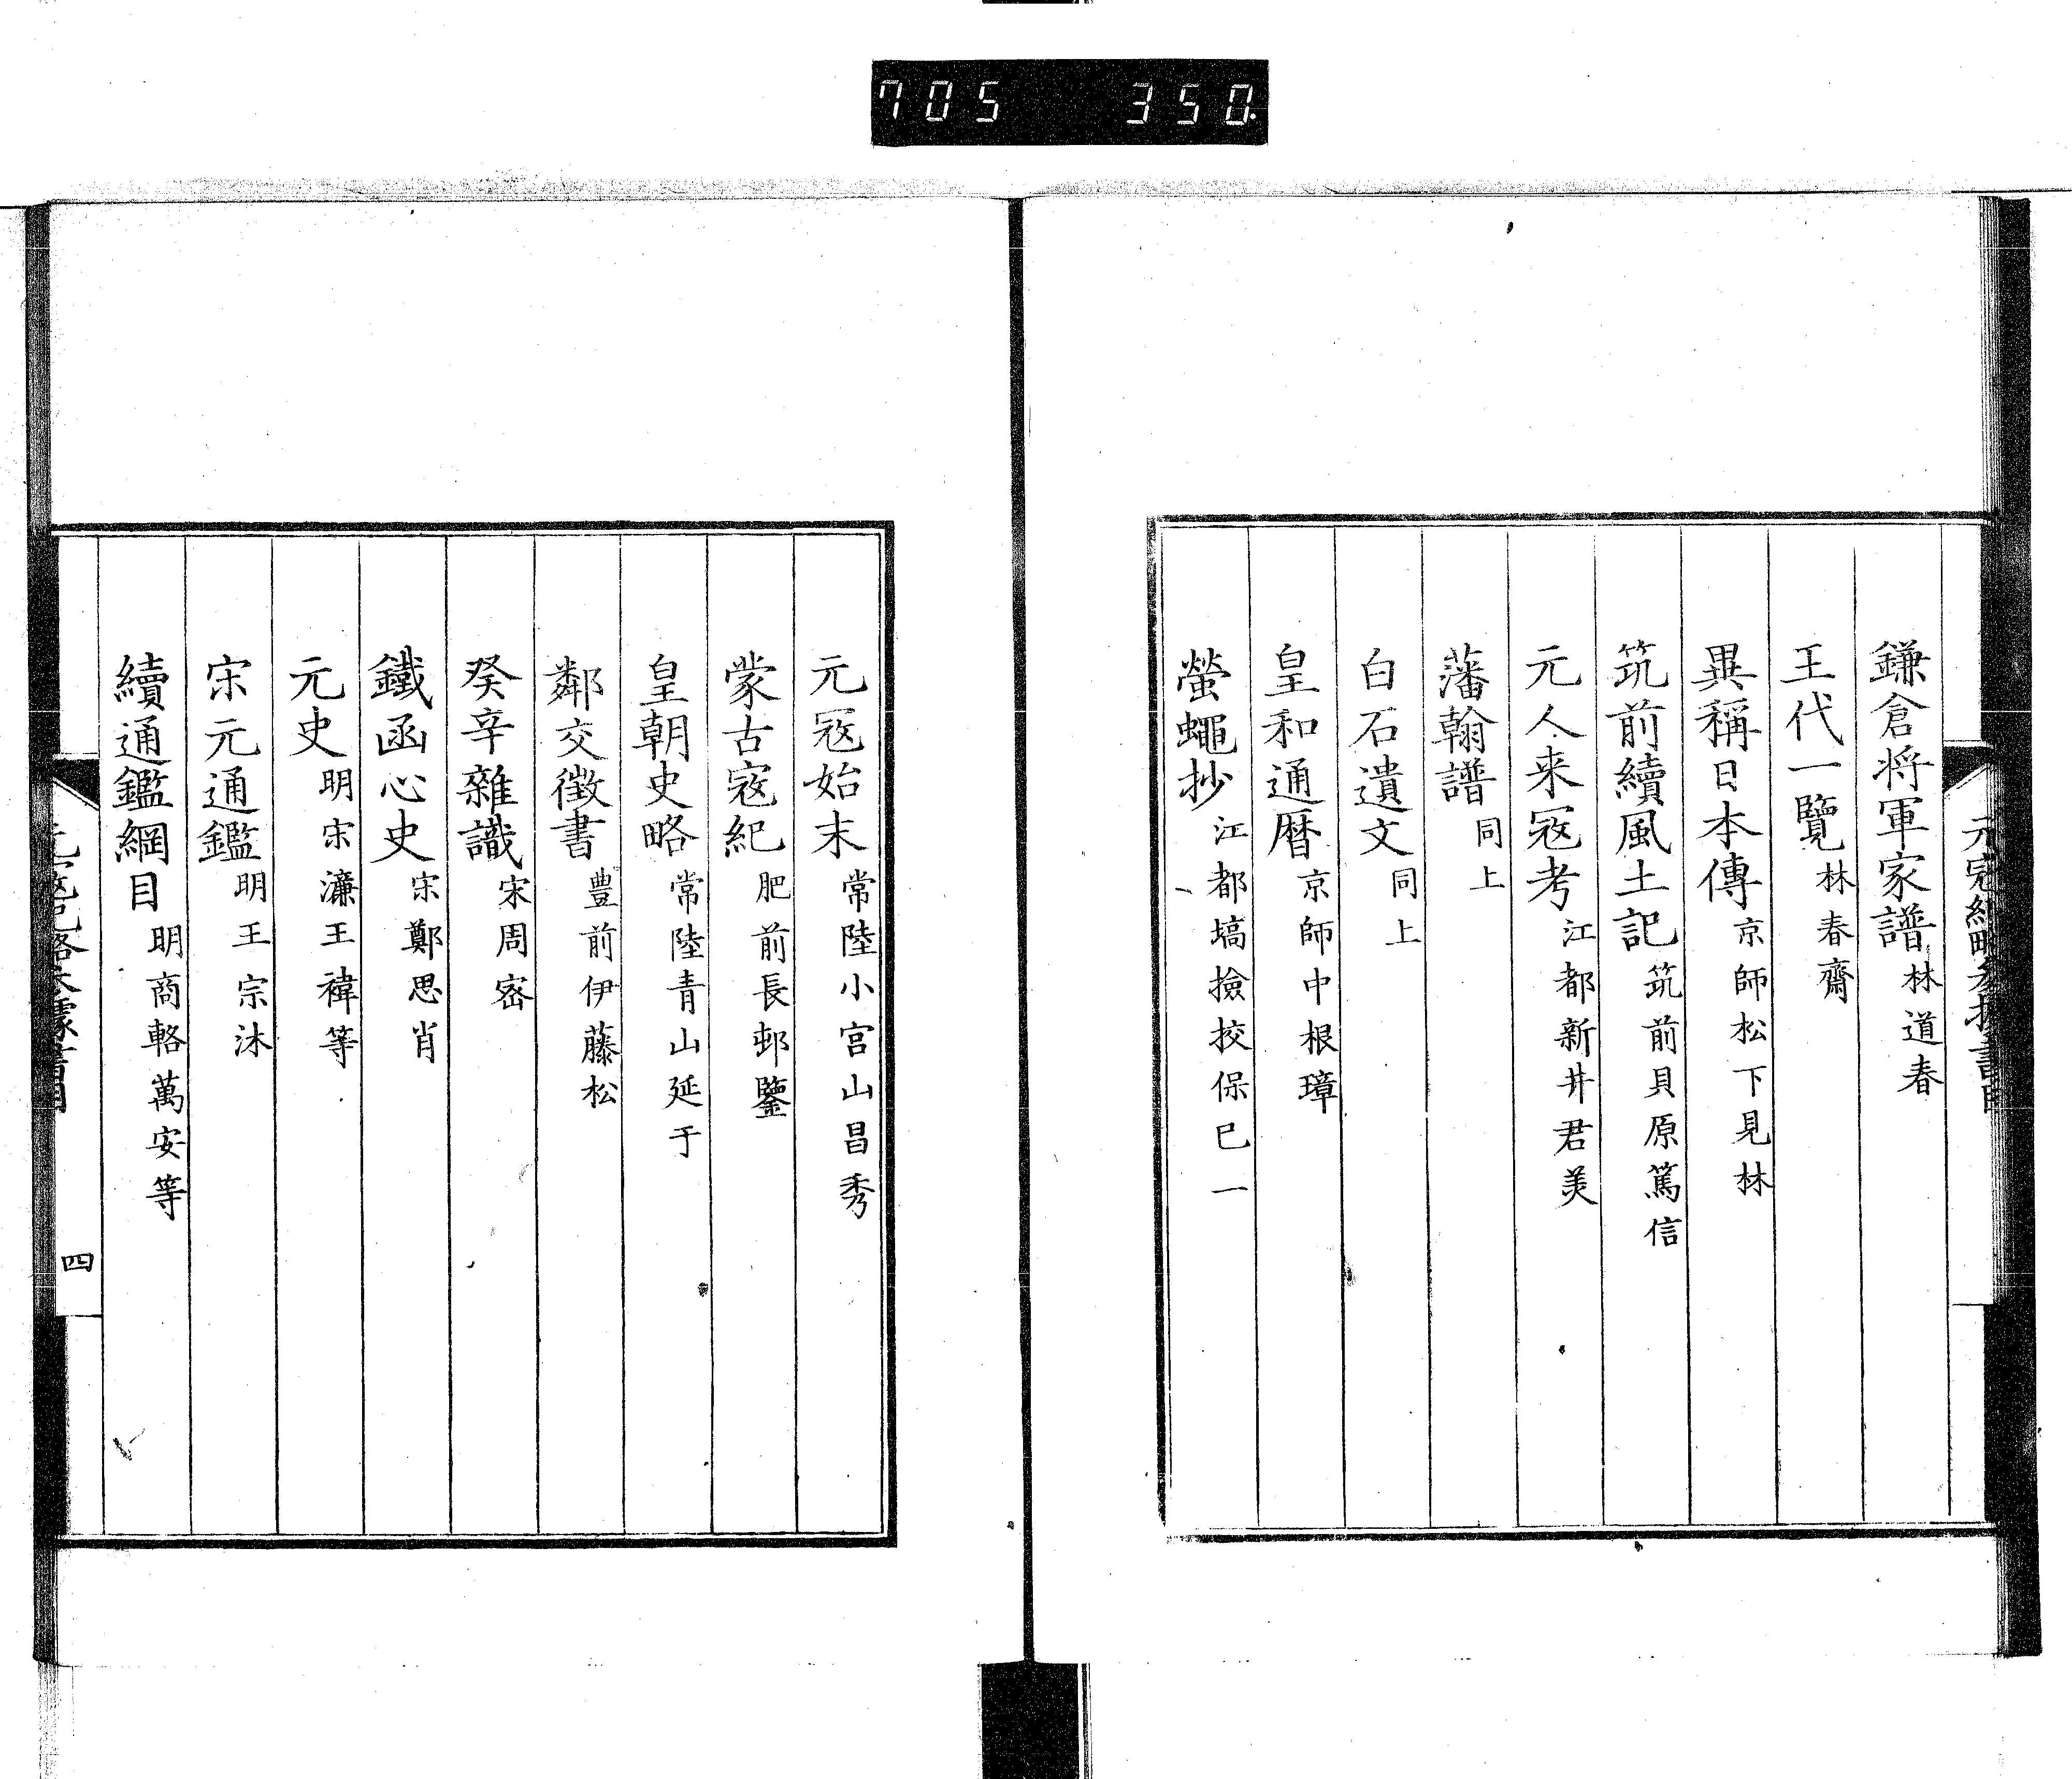 705 350
鎌倉将軍家譜 林道春
王代一覽 林春齋
異稱日本傳 京師松下見林
筑前續風土記 筑前貝原篤信
元人来寇考 江都新井君美
藩翰譜 同上
白石遺文 同上
皇和通暦 京師中根璋
螢蠅抄 江都塙撿挍保已一
元寇始末 常陸小宮山昌秀
蒙古寇紀 肥前長邨鑒
皇朝史略 常陸青山延于
鄰交徵書 豊前伊藤松
癸辛雜識 宋周密
鐵函心史 宋鄭思肖
元史 明宋濂王褘等
宋元通鑑 明王宗沐
續通鑑綱目 明商輅萬安等
四